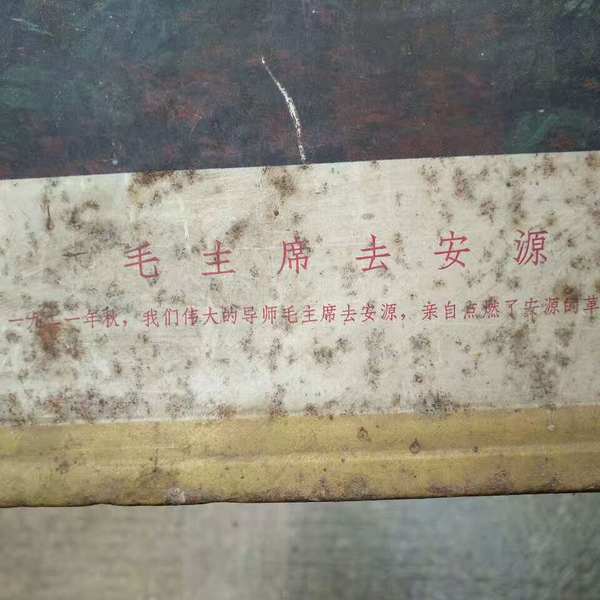 毛主席去安源
一九二一年秋，我们伟大的导师毛主席去安源，亲自点燃了安源的革